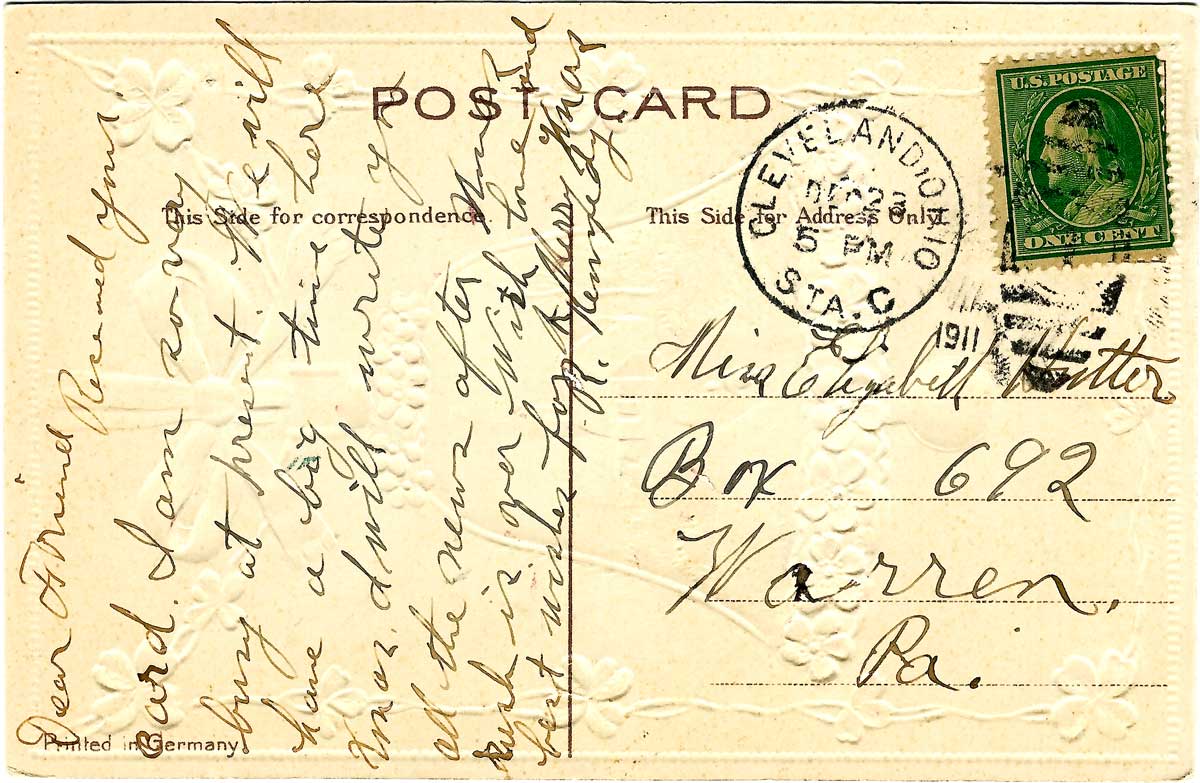 POST CARD
This Side for correspondence.
This Side for Address Only.
U.S. POSTAGE
ONE CENT
CLEVELAND, OHIO
DEC 23
5 PM
STA. C
1911
Dear Friend Received your
card. I am very
busy at present. We will
have a big time here
Xmas. I will write you
all the news after Xmas
rush is over With love and
best wishes for A Merry Xmas
R. Kennedy.
Miss Elizabeth Hutter
Box 692
Warren.
Pa.
Printed in Germany